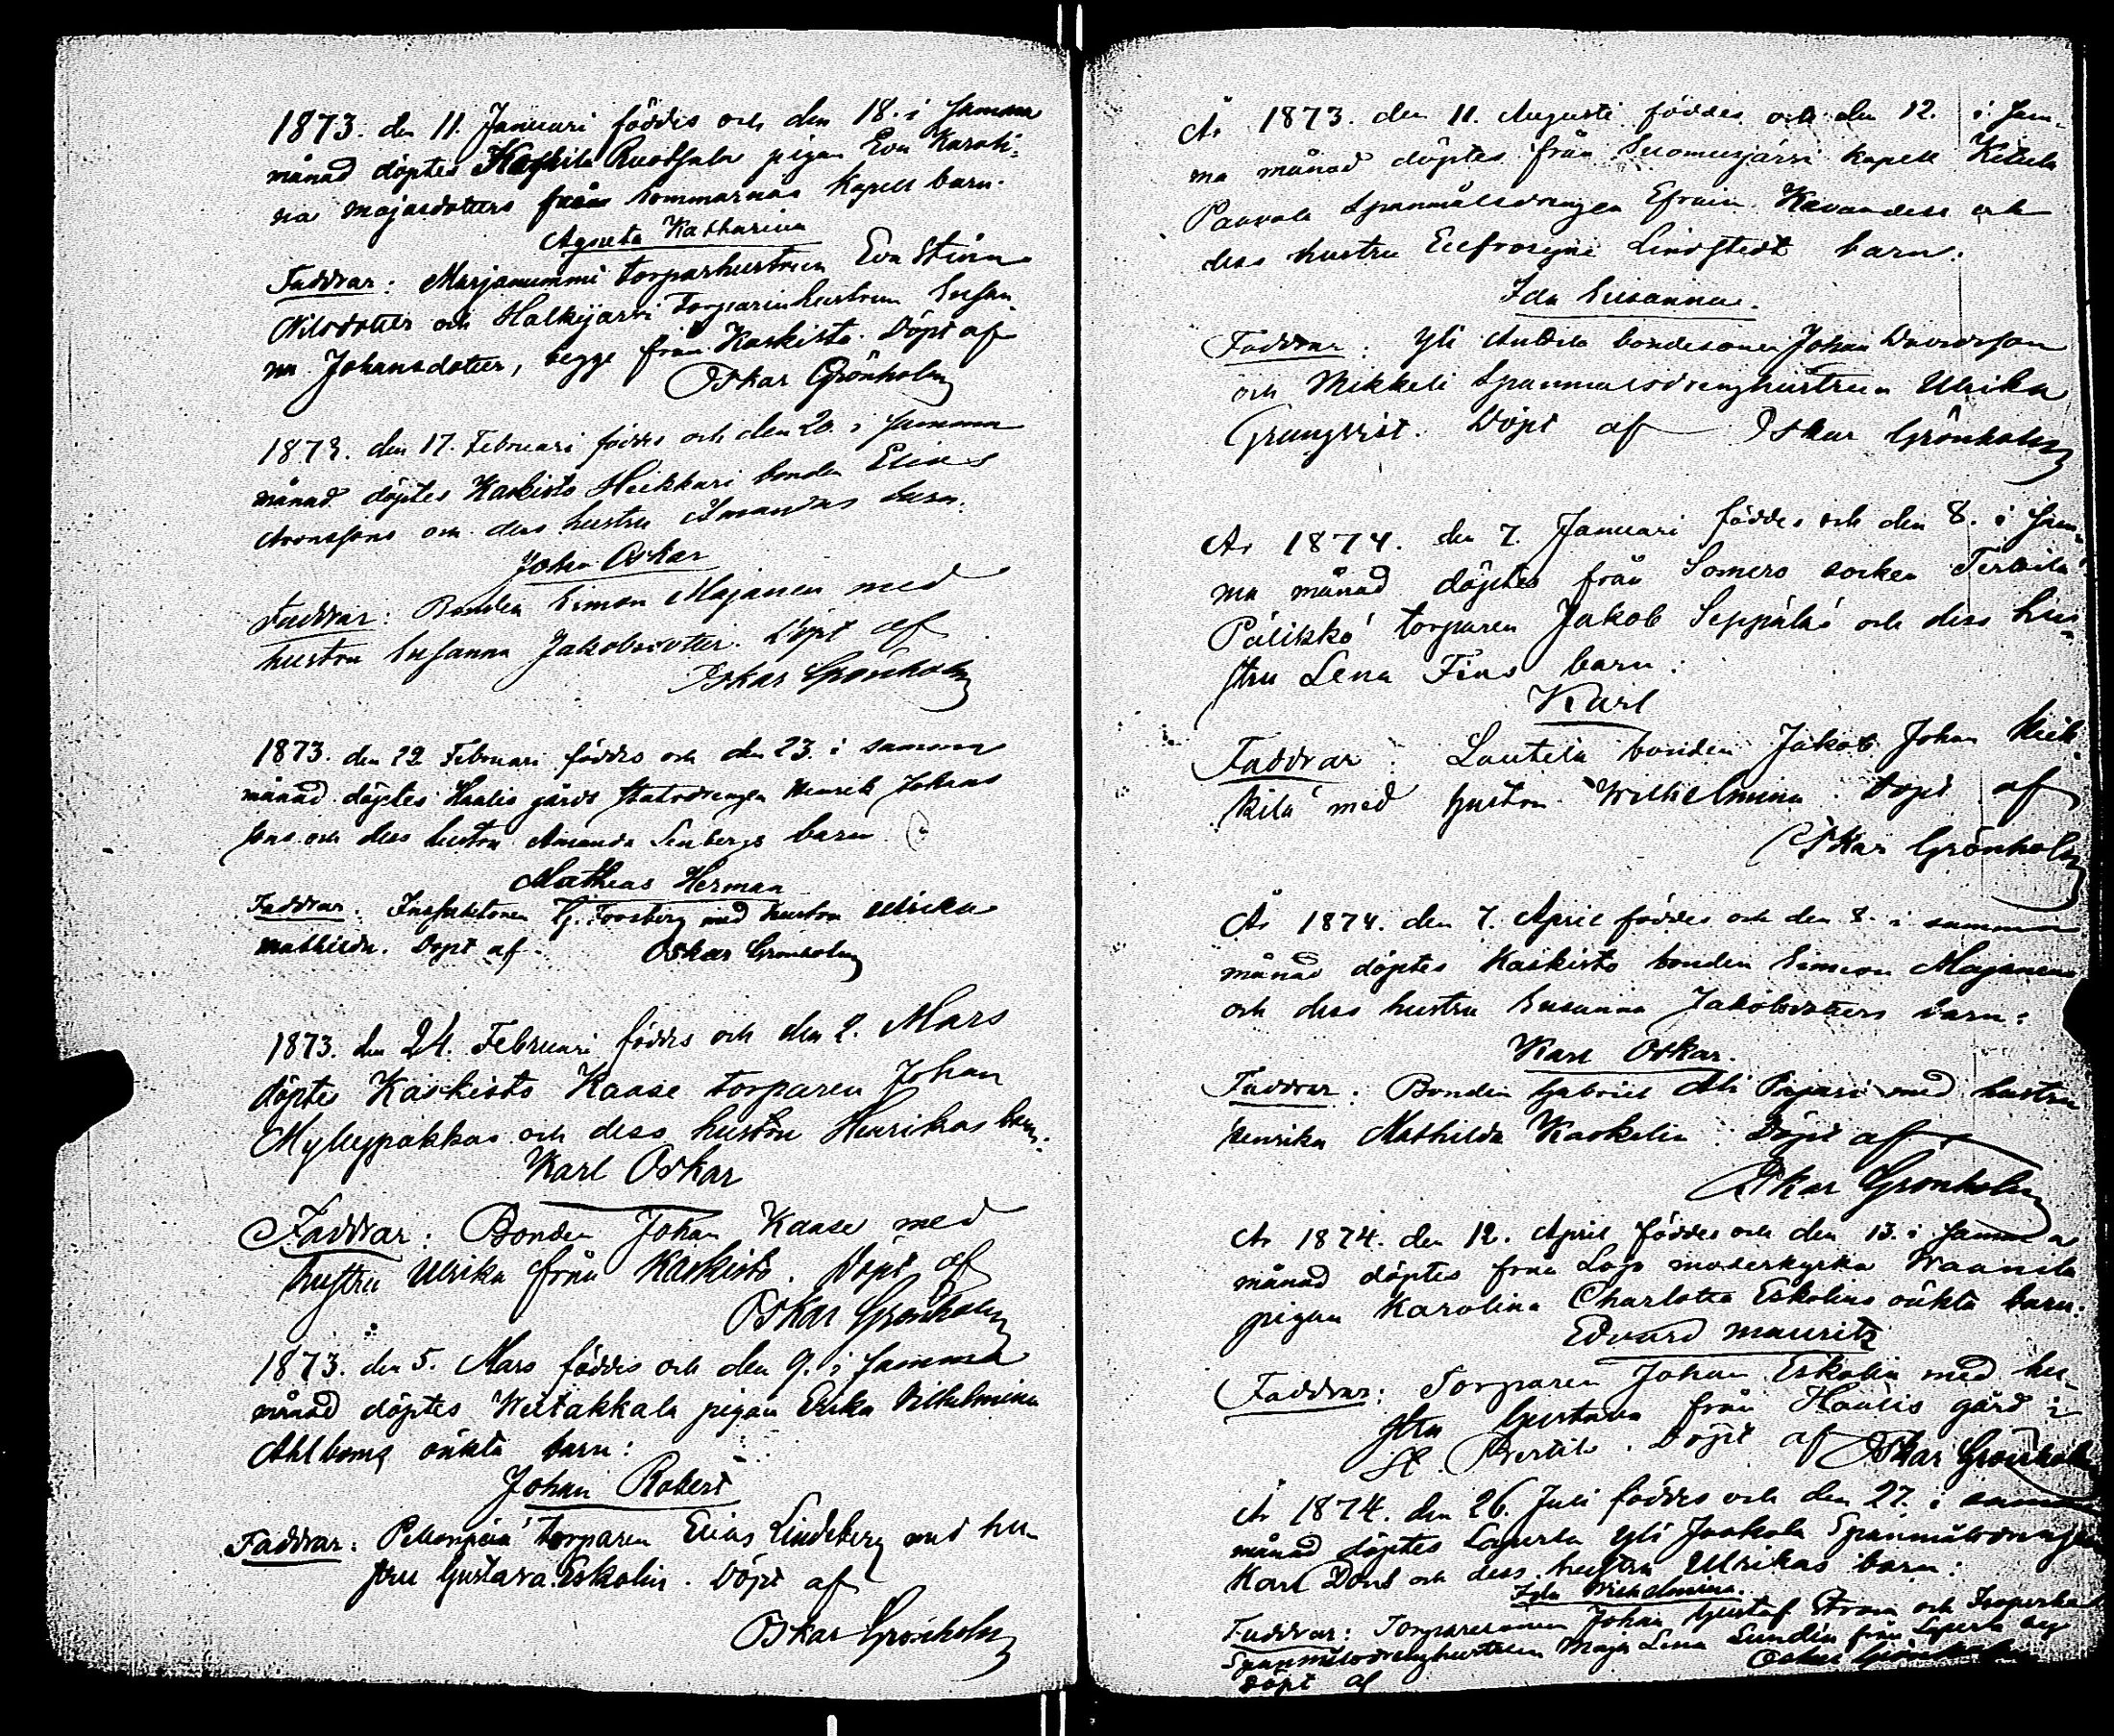 1873. den 11. Januari föddes och den 18. i samma
månad döptes Ruotsala pigan Eva Karoli-
na Majasdotters från Sommarnäs Kapell barn.
Agneta Katharina
Faddrar: Marjanummi torparhustrun Eva Stina
Nilsdotter och Halkijärvi Torparinhustrun Susan-
na Johansdotter, begge från Kaskisto. Döpt af
Oskar Grönholm
1873. den 17. Februari föddes och den 20. i samma
månad döptes Kaskisto Heikkari bonden Elias
Aronssons och dess hustru Amandas barn.
Johan Oskar
Faddrar: Bonden Simon Majanen med
hustru Susanna Jakobsdotter. Döpt af
Oskar Grönholm
1873. den 22 Februari föddes och den 23. i samma
månad döptes Haalis gårds Statodrengen Henrik Johans
sons och dess hustru Amanda Senbergs barn
Mathias Herman
Faddrar: Inspektoren G. Forsberg med hustru Ulrika
Mathilda. Döpt af Oskar Grönholm
1873. den 24. Februari föddes och den 2. Mars
döptes Kaskisto Kaase torparen Johan
Myllypakkas och dess hustru Henrikas barn:
Karl Oskar
Faddrar: Bonden Johan Kaase med
hustru Ulrika från Kaskisto. Döpt af
Oskar Grönholm
1873. den 5. Mars föddes och den 9. i samma
månad döptes Wiitakkala pigan Erika Vilhelmina
Ahlboms oäkta barn:
Johan Robert
Faddrar: torparen Elias Lindeberg med hu-
stru Gustava Eskolin. Döpt af
Oskar Grönholm
År 1873. den 11. Augusti föddes och den 12. i sam-
ma månad döptes från Suomusjärvi kapell Kitula
Paavola Spanmålsdrengen Efraim och
dess hustru Eufrosyne Lindstedt barn:
Ida Susanna.
Faddrar: Yli Anttila bondesonen Johan Davidsson
och Mikkeli Spanmålsdrenghustrun Ulrika
Grungvist. Döpt af Oskar Grönholm
År 1874. den 7. Januari föddes och den 8. i sam-
ma månad döptes från Somero socken Terttilä
Pälikkö torparen Jakob Seppälä och dess hu-
stru Lena Fins barn:
Karl
Faddrar: Lautela bonden Jakob Johan Kiik-
kilä med hustru Wilhelmina. Döpt af
Oskar Grönholm
År 1874. den 7. April föddes och den 8. i samma
månad döptes Kaskisto bonden Simeon Majanens
och dess hustru Susanna Jakobsdotters barn:
Karl Oskar.
Faddrar: Bonden Gabriel Ali Pajari med hustru
Henrika Mathilda Kaskelin. Döpt af
Oskar Grönholm
År 1874. den 12. April föddes och den 13. i samma
månad döptes från Lojo moderkyrka Waanila
pigan Karolina Charlotta Eskolins oäkta barn:
Edvard Mauritz
Faddrar: Torparen Johan Eskolin med hu-
stru Gustava från Haalis gård i
St. Bertils. Döpt af Oskar Grönholm
År 1874. den 26. Juli föddes och den 27. i samma
månad döptes Laperla Yli Jaakola Spanmålsdrengen
Karl Dons och dess hustru Ulrikas barn:
Ida Wilhelmina.
Faddrar: Torparesonen Johan Gustaf Ström och
Spanmålsdrenghustrun Maja Lena Lundin från Laperla
Döpt af Oskar Grönholm